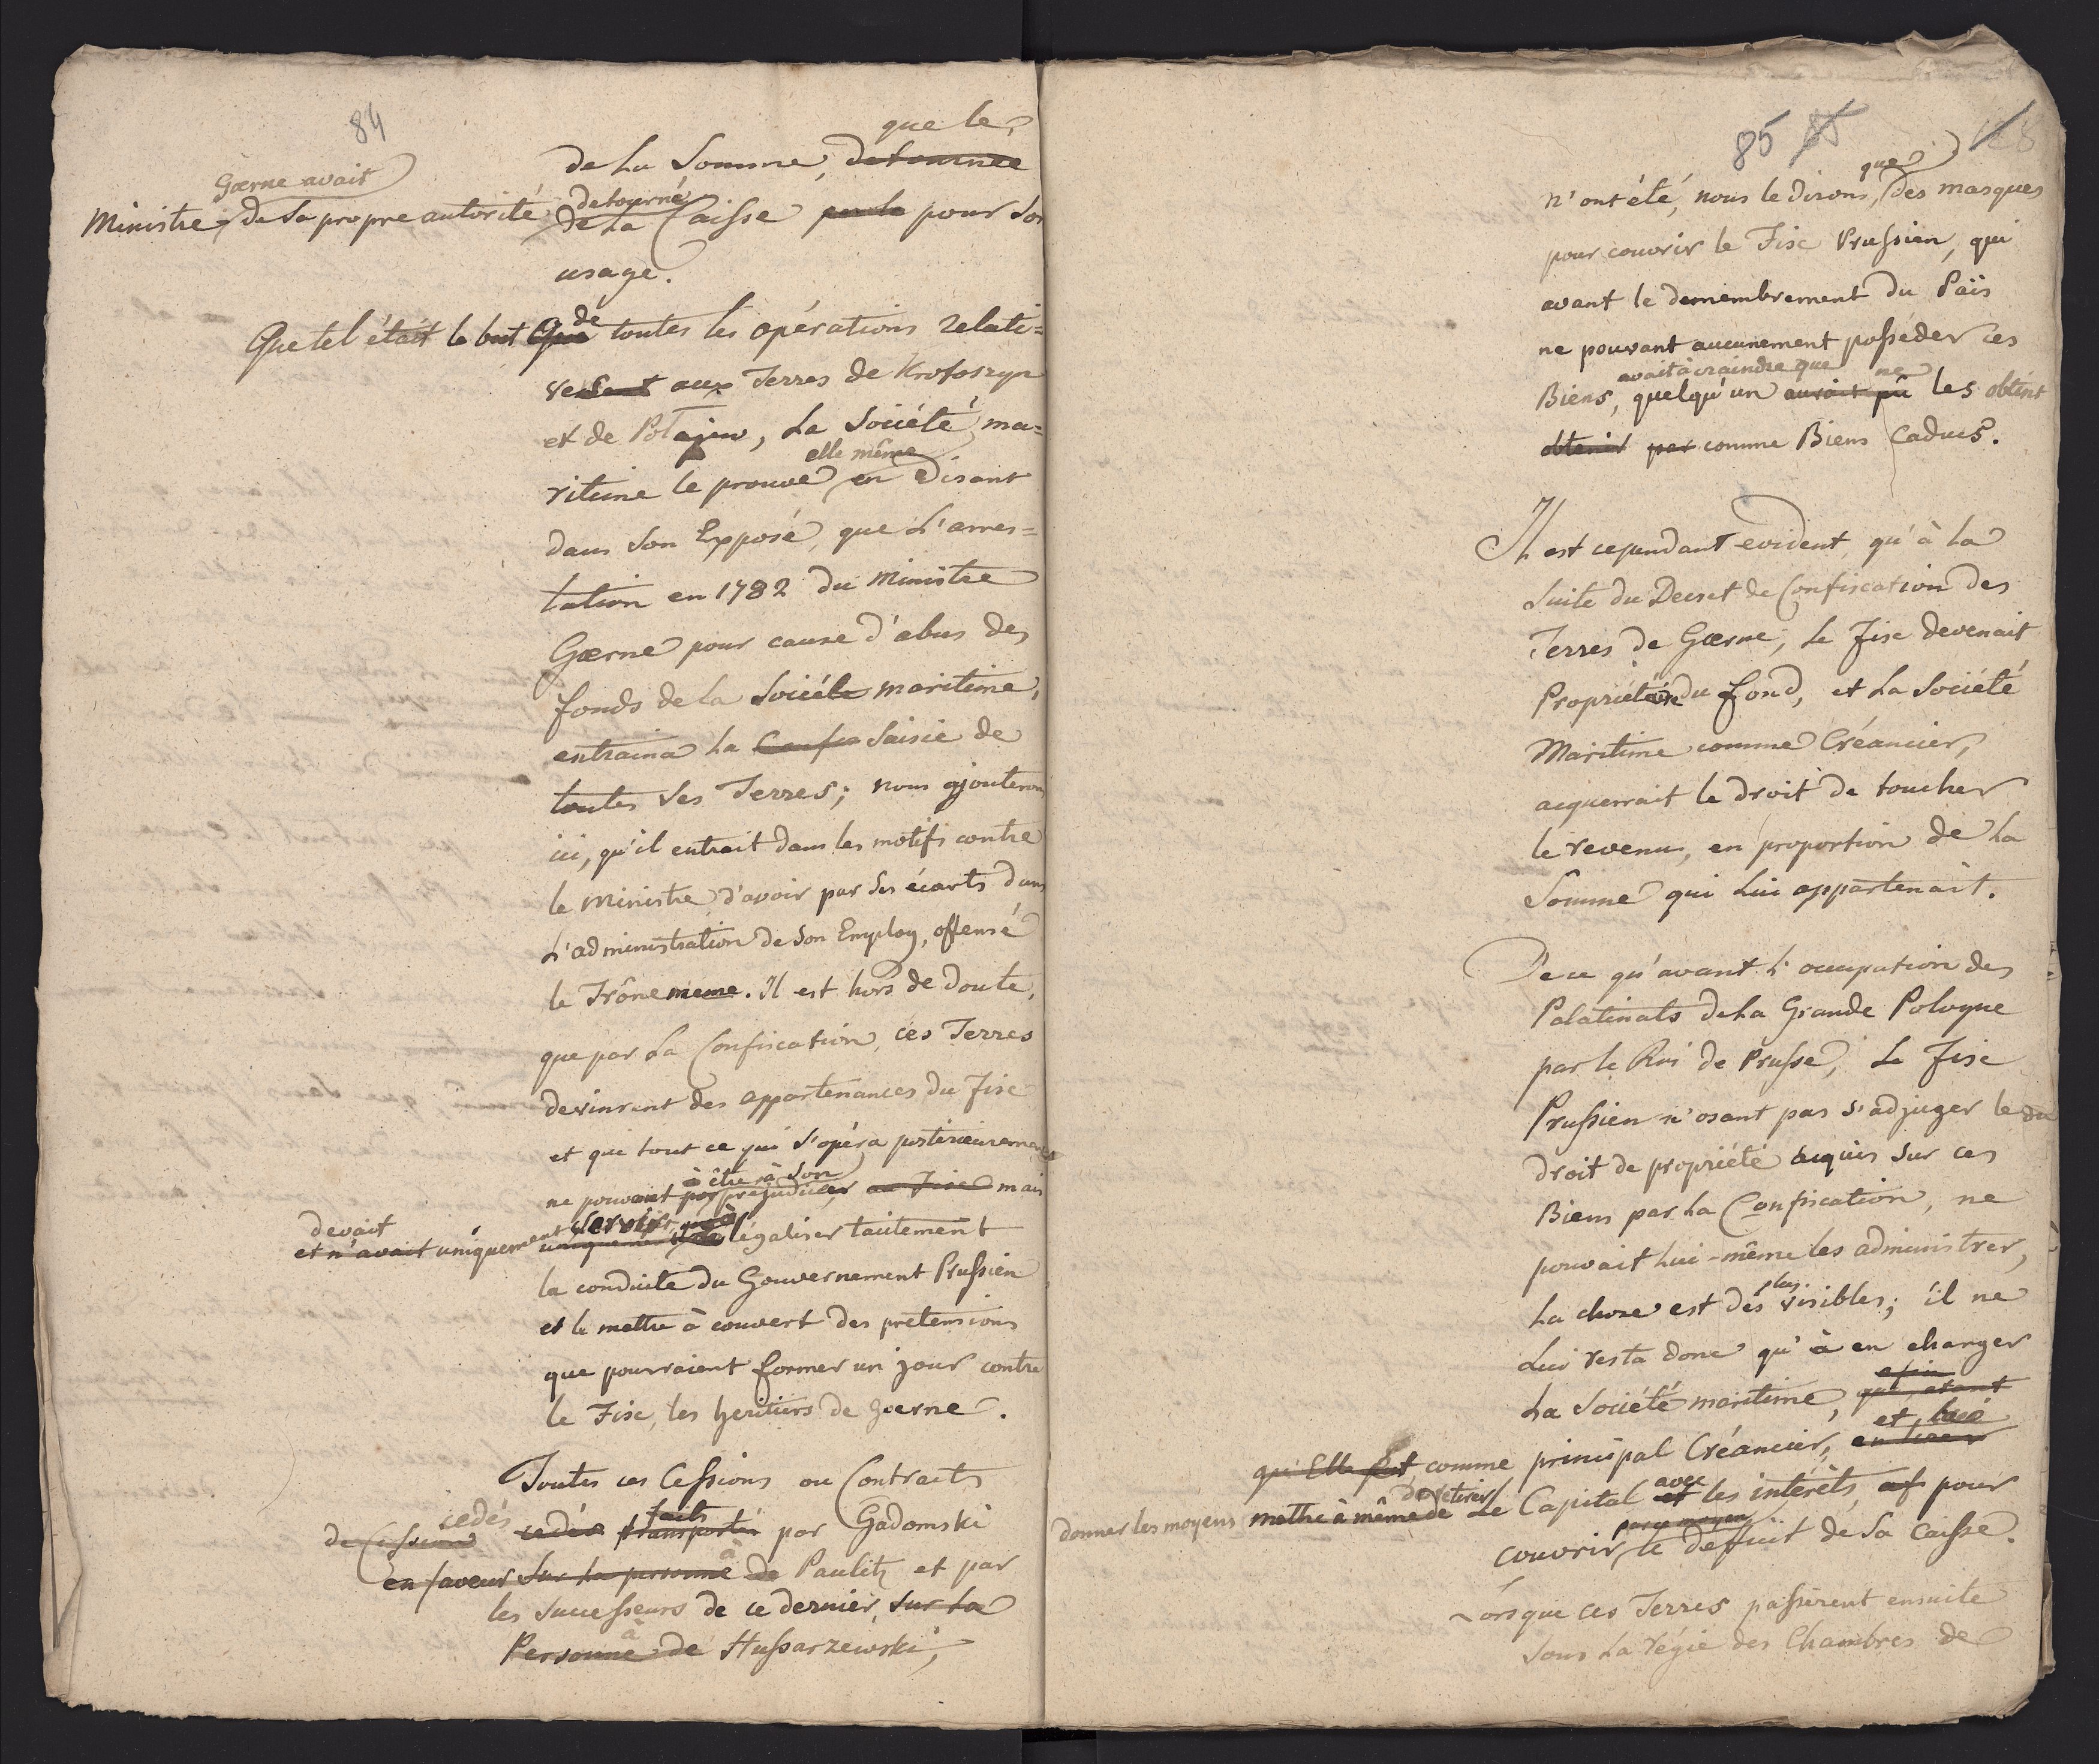 84
que le
de La Somme, detournée
Gœrne avait
Ministre, de Sa propre autorité detourné
de La Caisse par le pour Son
usage.
Que tel était le but Que de toutes les opérations relati=
ves aux Terres de Krotoszyn
et de Potajew, La Société ma=
elle même
ritime le prouve en Disant
dans Son Exposé, que L'arres=
tation en 1782 du Ministre
Gœrne pour cause d'abus des
fonds de la Société maritime,
entraina La Confis Saisie de
toutes Ses Terres; nous ajouterons
ici, qu'il entrait dans les motifs contre
le Ministre d'avoir par Ses écarts dans
L'administration de Son Employ, offensé
le Trône meme. Il est hors de Doute,
que par La Confiscation, ces Terres
devinrent des appartenances du Fisc
et que tout ce qui S'opéra posterieurement
à être à Son
ne pouvant pas prejudicier au Fisc mais
devait
et n'avait uniquement servir qu'à légaliser tacitement
la conduite du Gouvernement Prussien
et le mettre à couvert des pretensions
que pourraient former un jour contre
le Fisc, les heritiers de Goerne.
Toutes ces Cessions ou Contracts
cedés faits
de Cession cedés transportés par Gadomski
à
en faveur Sur La personne de Paulitz et par
les Successeurs de ce dernier, Sur La
à
Personne de Hussarzewski,
85 85
que
n'ont été, nous le dirons, des masques
pour couvrir le Fisc Prussien, qui
avant le demembrement du Païs
ne pouvant aucunement posséder ces
avait à craindre que ne
Biens, quelqu'un auroit pû les obtint
obtenir par comme Biens Caducs.
Il est cependant evident, qu'à La
Suite du Decret de Confiscation des
Terres de Gœrne, Le Fisc devenait
Propriétaire du fond, et La Société
Maritime comme Créancier,
acquerrait le droit de toucher
le revenu, en proportion de La
Somme qui Lui appartenait.
De ce qu'avant L'occupation des
Palatinats de La Grande Pologne
par le Roi de Prusse, Le Fisc
Prussien n'osant pas S'adjuger le
droit de propriété acquis Sur ces
Biens par La Confiscation, ne
pouvait Lui-même les administrer,
plus
La chose est des visibles; il ne
Lui resta donc qu'à en charger
afin
La Société maritime, qui, etant
et lui
qu'Elle fut, comme principal Créancier, en tirer
de retirer avec
donner les moyens mettre à même de Le Capital et les intérêts, af pour
par ce moyen
couvrir, le deficit de Sa Caisse.
Lorsque ces Terres passerent ensuite
Sous La régie des Chambres de